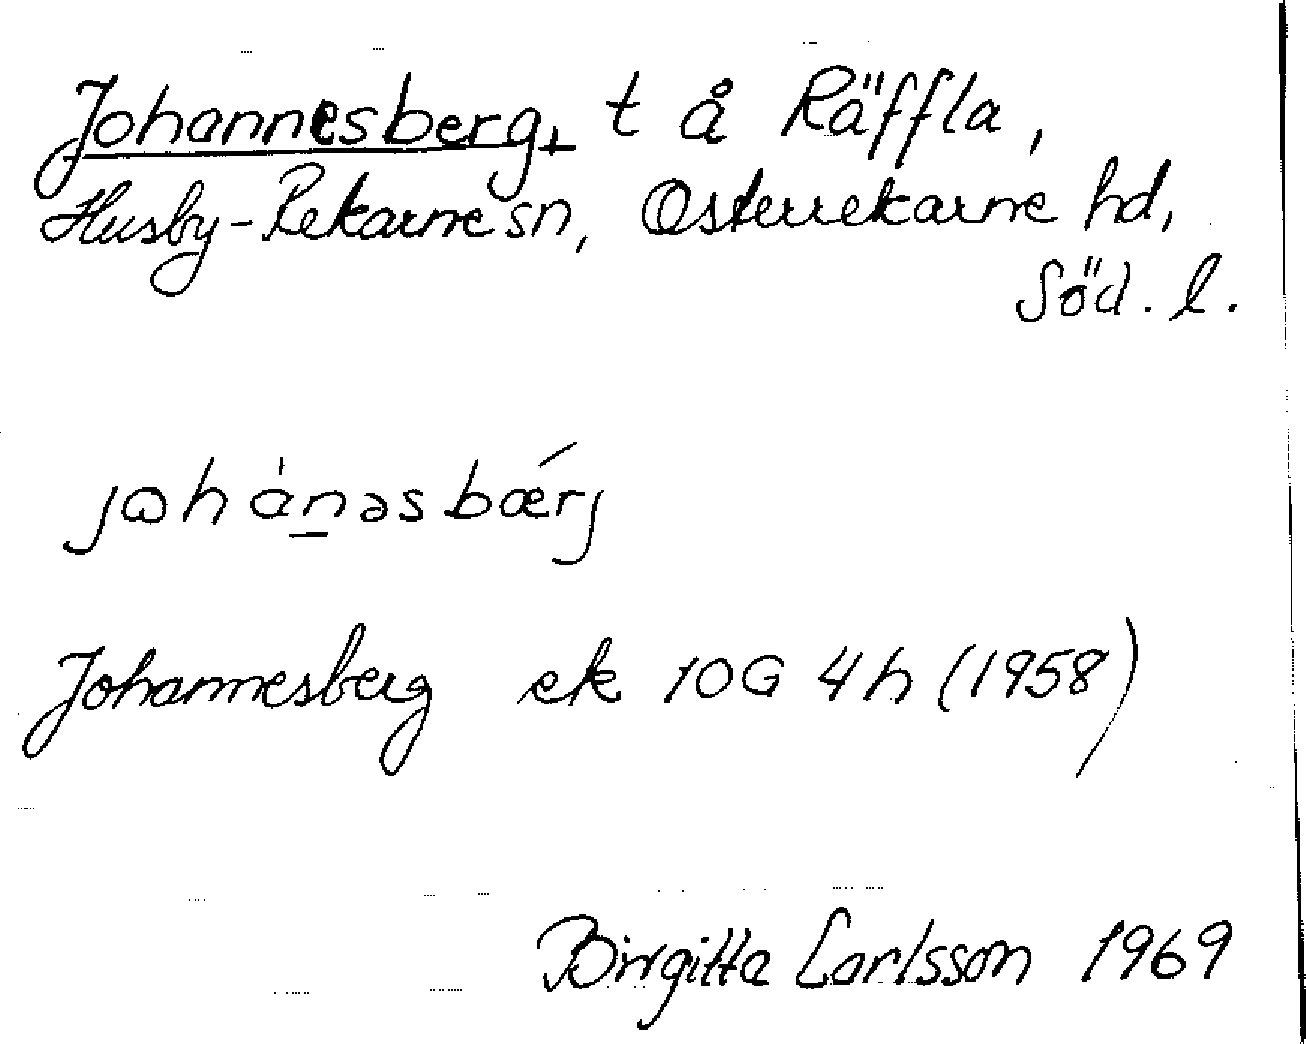 Johannesberg, t å Räffla,
Husby-Rekarne sn, Österrekarne hd,
Söd. l.
jαhànəsbǽrj
Johannesberg ek 10G 4h (1958)
Birgitta Carlsson 1969